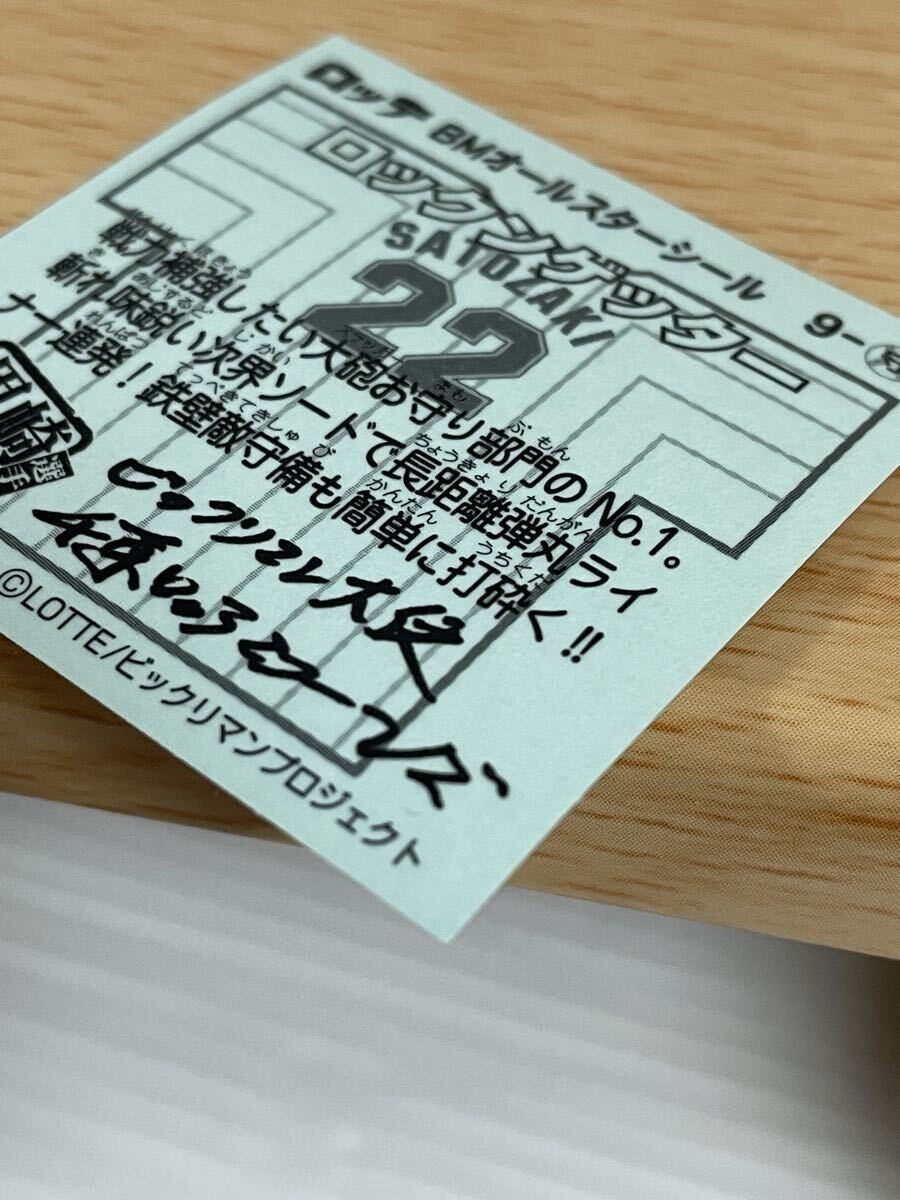 ロッテ BMオールスターシール 9-
ロックンゲッター
SATOZAKI
22
戦力補強したい大砲お守り部門のNo.1。
斬れ味鋭い次界ソードで長距離弾丸ライ
ナー連発！鉄壁敵守備も簡単に打砕く!!
崎選手
ビックリマン大好
©LOTTE/ビックリマンプロジェクト